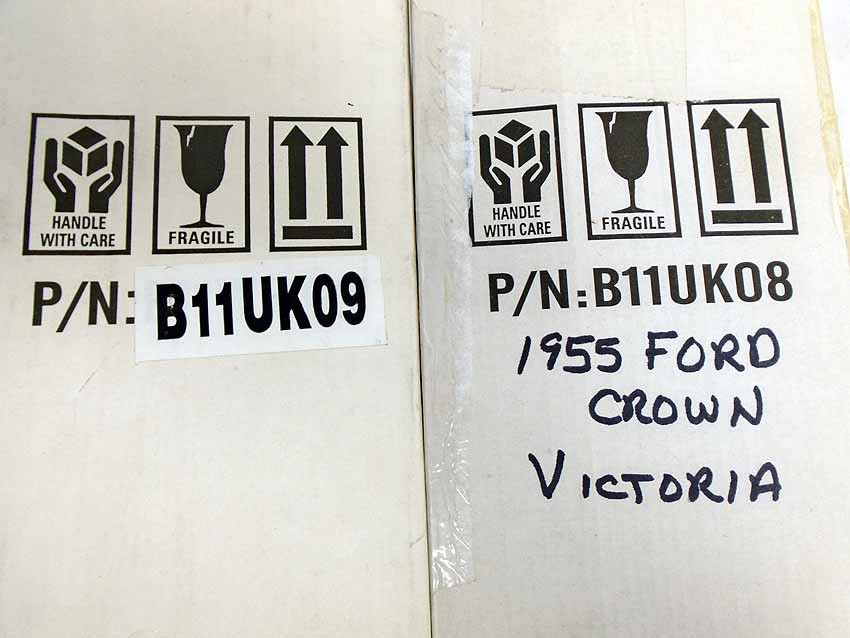 HANDLE
WITH CARE
FRAGILE
P/N: B11UK09
HANDLE
WITH CARE
FRAGILE
P/N: B11UK08
1955 FORD
CROWN
VICTORIA